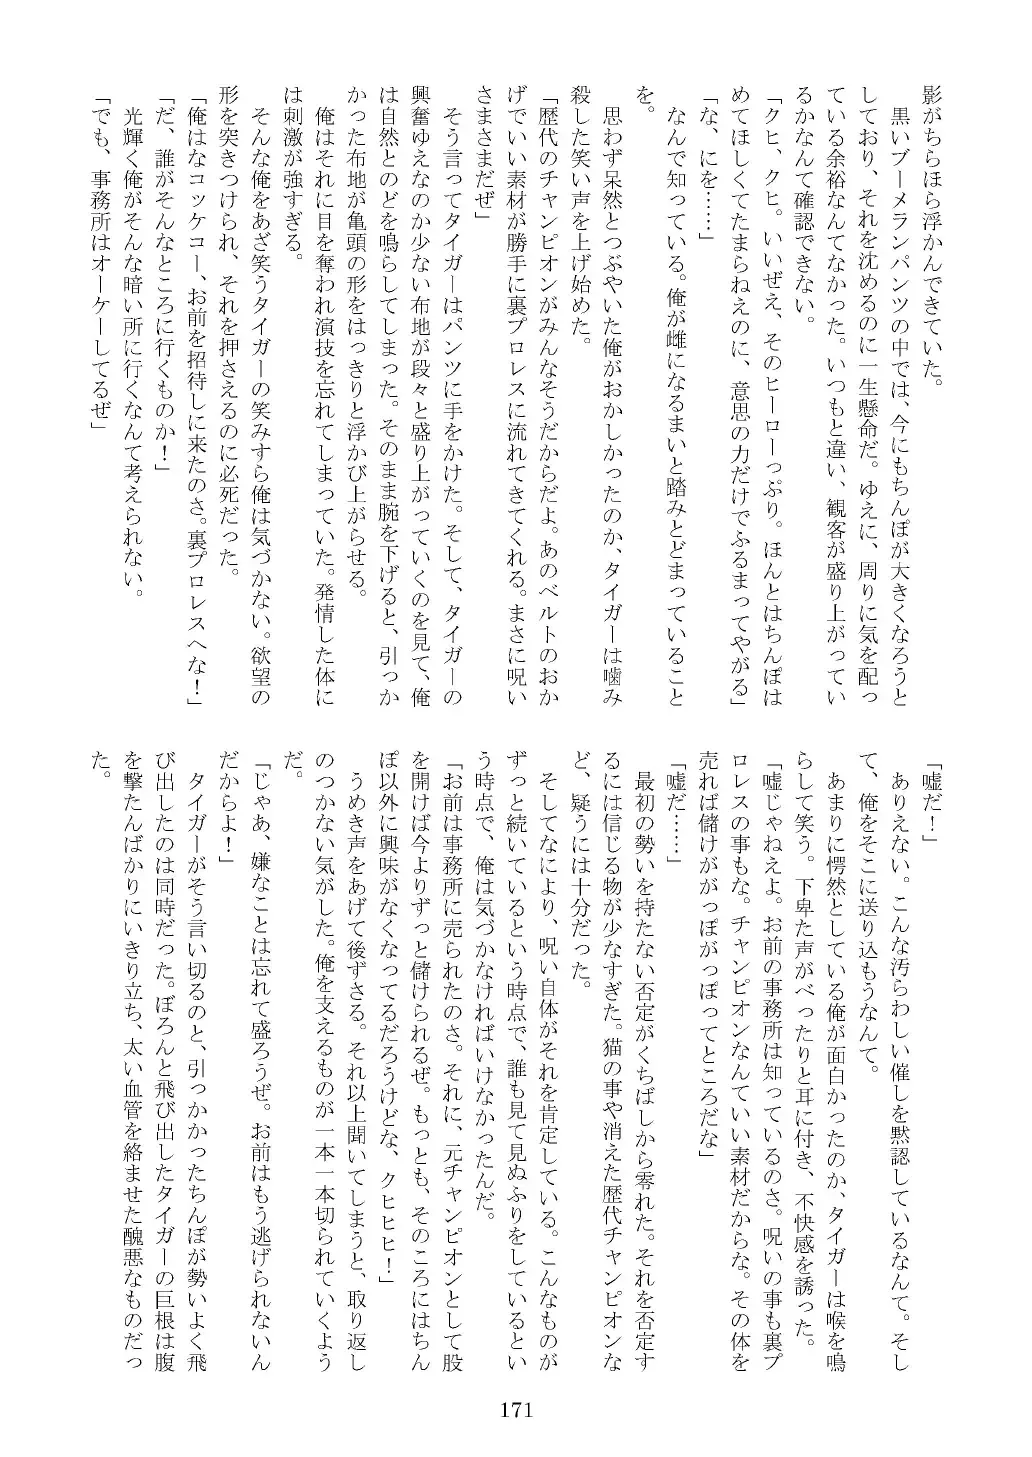 影がちらほら浮かんできていた。
　黒いブーメランパンツの中では、今にもちんぽが大きくなろうと
しており、それを沈めるのに一生懸命だ。ゆえに、周りに気を配っ
ている余裕なんてなかった。いつもと違い、観客が盛り上がってい
るかなんて確認できない。
「クヒ、クヒ。いいぜえ、そのヒーローっぷり。ほんとはちんぽは
めてほしくてたまらねえのに、意思の力だけでふるまってやがる」
「な、にを……」
　なんで知っている。俺が雌になるまいと踏みとどまっていること
を。
　思わず呆然とつぶやいた俺がおかしかったのか、タイガーは噛み
殺した笑い声を上げ始めた。
「歴代のチャンピオンがみんなそうだからだよ。あのベルトのおか
げでいい素材が勝手に裏プロレスに流れてきてくれる。まさに呪い
さまさまだぜ」
　そう言ってタイガーはパンツに手をかけた。そして、タイガーの
興奮ゆえなのか少ない布地が段々と盛り上がっていくのを見て、俺
は自然とのどを鳴らしてしまった。そのまま腕を下げると、引っか
かった布地が亀頭の形をはっきりと浮かび上がらせる。
　俺はそれに目を奪われ演技を忘れてしまっていた。発情した体に
は刺激が強すぎる。
　そんな俺をあざ笑うタイガーの笑みすら俺は気づかない。欲望の
形を突きつけられ、それを押さえるのに必死だった。
「俺はなコッケコー、お前を招待しに来たのさ。裏プロレスへな！」
「だ、誰がそんなところに行くものか！」
　光輝く俺がそんな暗い所に行くなんて考えられない。
「でも、事務所はオーケーしてるぜ」
「嘘だ！」
　ありえない。こんな汚らわしい催しを黙認しているなんて。そし
て、俺をそこに送り込もうなんて。
　あまりに愕然としている俺が面白かったのか、タイガーは喉を鳴
らして笑う。下卑た声がべったりと耳に付き、不快感を誘った。
「嘘じゃねえよ。お前の事務所は知っているのさ。呪いの事も裏プ
ロレスの事もな。チャンピオンなんていい素材だからな。その体を
売れば儲けががっぽがっぽってところだな」
「嘘だ……」
　最初の勢いを持たない否定がくちばしから零れた。それを否定す
るには信じる物が少なすぎた。猫の事や消えた歴代チャンピオンな
ど、疑うには十分だった。
　そしてなにより、呪い自体がそれを肯定している。こんなものが
ずっと続いているという時点で、誰も見て見ぬふりをしているとい
う時点で、俺は気づかなければいけなかったんだ。
「お前は事務所に売られたのさ。それに、元チャンピオンとして股
を開けば今よりずっと儲けられるぜ。もっとも、そのころにはちん
ぽ以外に興味がなくなってるだろうけどな、クヒヒヒ！」
　うめき声をあげて後ずさる。それ以上聞いてしまうと、取り返し
のつかない気がした。俺を支えるものが一本一本切られていくよう
だ。
「じゃあ、嫌なことは忘れて盛ろうぜ。お前はもう逃げられないん
だからよ！」
　タイガーがそう言い切るのと、引っかかったちんぽが勢いよく飛
び出したのは同時だった。ぼろんと飛び出したタイガーの巨根は腹
を撃たんばかりにいきり立ち、太い血管を絡ませた醜悪なものだっ
た。
171